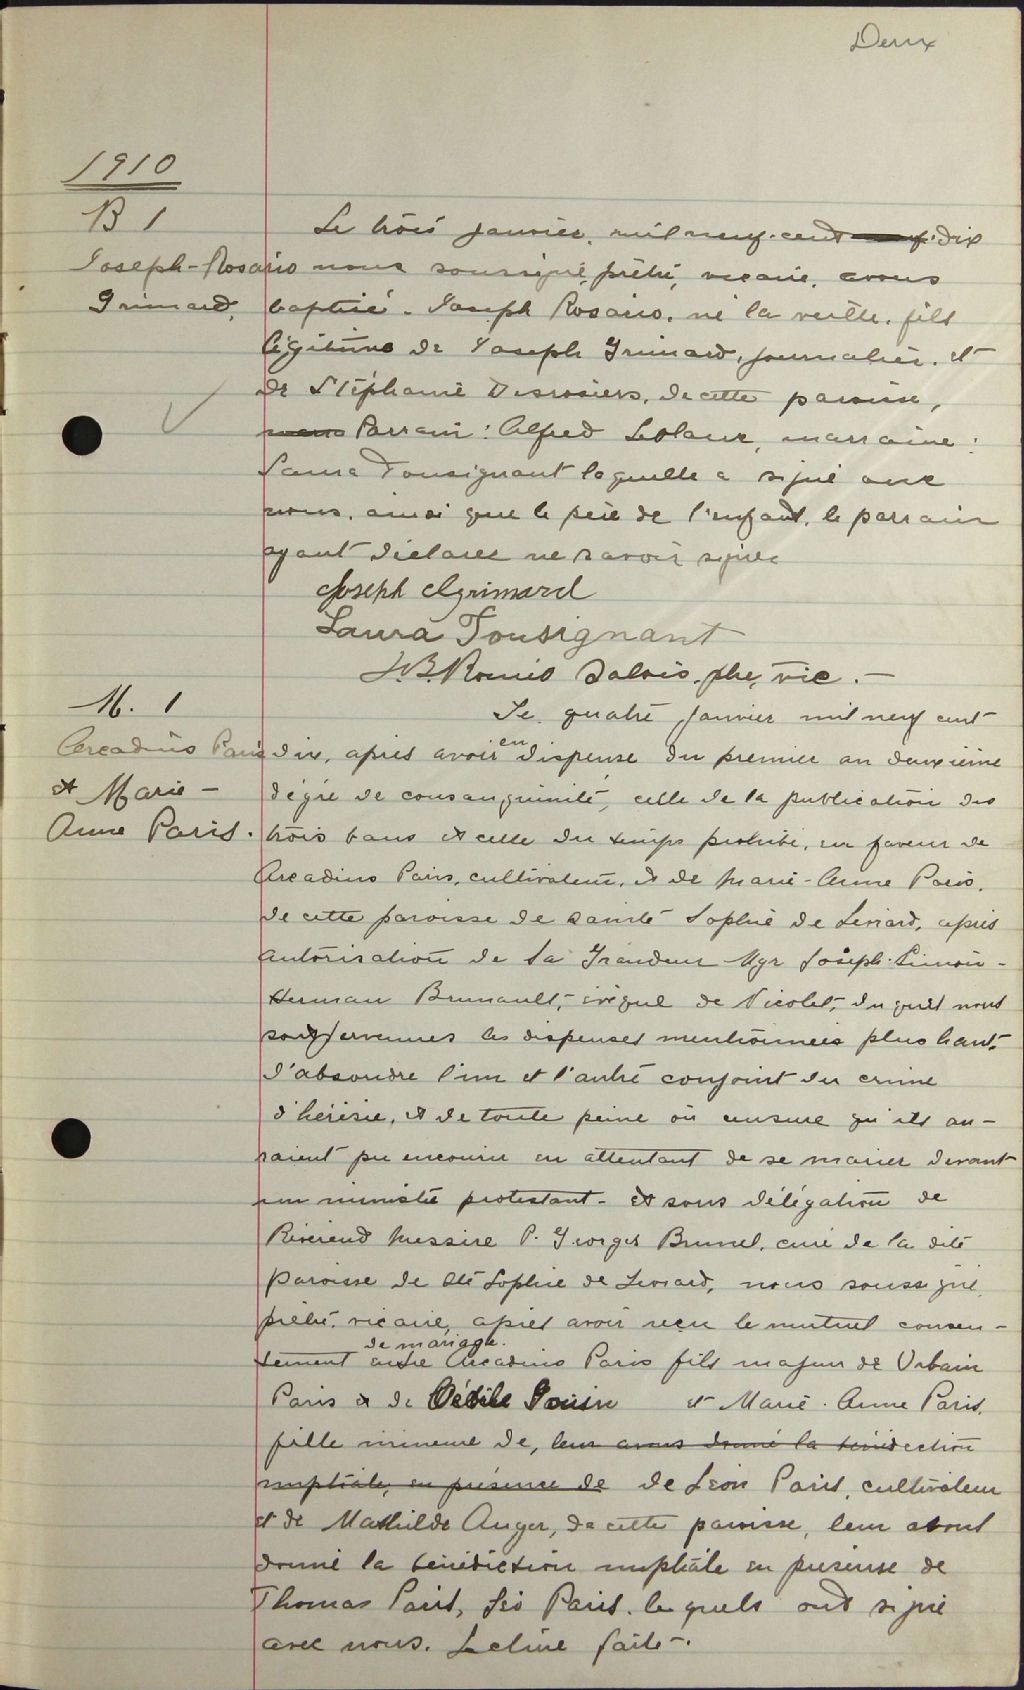 Deux
1910
B 1
Joseph-Rosario
Grimard,
Le trois janvier, mil neuf cent dix
nous soussigné, prêtre, vicaire, avons
baptisé Joseph Rosario, né la veille, fils
légitime de Joseph Grimard, journalier, et
de Stéphanie Desrosiers, de cette paroisse,
Parrain: Alfred Leblanc, marraine:
Laura Tousignant laquelle a signé avec
nous, ainsi que le père de l'enfant, le parrain
ayant déclaré ne savoir signer
Joseph Grimard
Laura Tousignant
J.B. Roméo Salois, ptre, vic.-
M. 1
Arcadius Paris
et Marie-
Anne Paris.
Le quatre janvier mil neuf cent
dix, après avoir eu dispense du premier au deuxième
dégré de consanguinité, celle de la publication des
trois bans et celle du temps prohibé, en faveur de
Arcadius Paris, cultivateur, et de Marie-Anne Paris,
de cette paroisse de sainte Sophie de Levrard, après
autorisation de Sa Grandeur Mgr Joseph-Simon-
Herman Brunault, évêque de Nicolet, duquel nous
sont parvenues les dispenses mentionnées plus haut,
d'absoudre l'un et l'autre conjoint du crime
d'hérésie, et de toute peine ou censure qu'ils au-
raient pu encourir en attentant de se marier devant
un ministre protestant- et sous délégation de
Révérend Messire P. Georges Brunel, curé de la dite
paroisse de Ste Sophie de Levrard, nous soussigné,
prêtre, vicaire, après avoir reçu le mutuel consen-
tement de mariage entre Arcadius Paris fils majeur de Urbain
Paris et de Cécile Gouin et Marie-Anne Paris,
fille mineure de, leur avons donné la bénédiction
nuptiale, en présence de de Léon Paris, cultivateur
et de Mathilde Auger, de cette paroisse, leur avons
donné la bénédiction nuptiale en présence de
Thomas Paris, Léo Paris, lequels ont signé
avec nous. Lecture faite-.